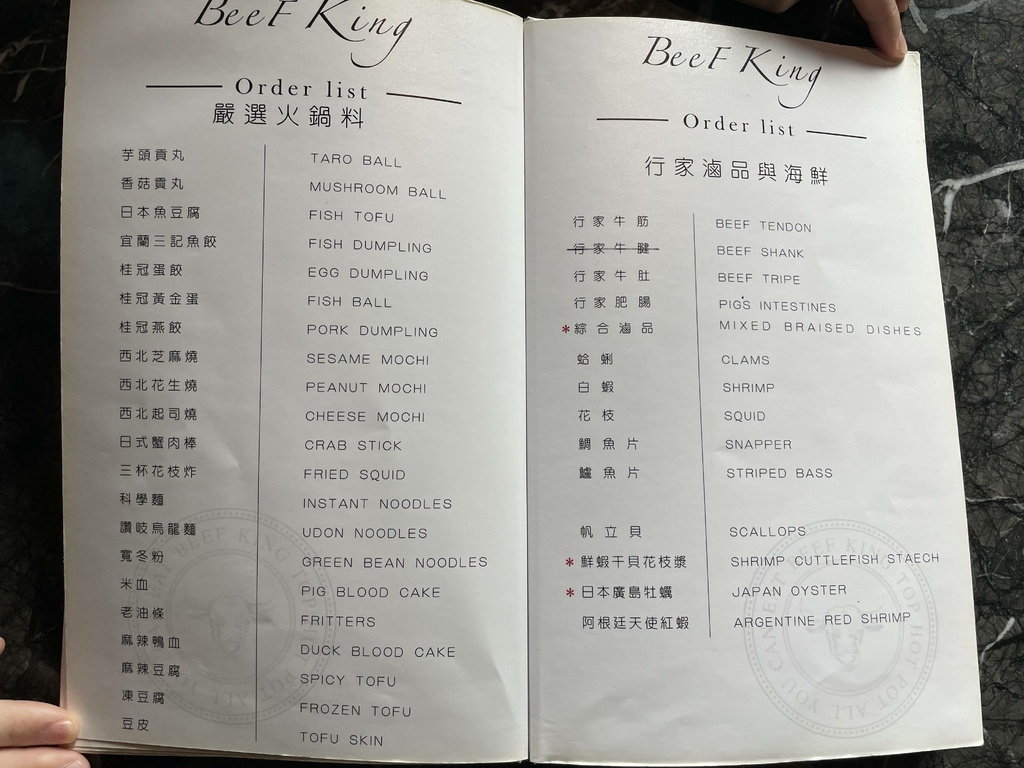 Beef King
Order list
嚴選火鍋料
芋頭貢丸 TARO BALL
香菇貢丸 MUSHROOM BALL
日本魚豆腐 FISH TOFU
宜蘭三記魚餃 FISH DUMPLING
桂冠蛋餃 EGG DUMPLING
桂冠黃金蛋 FISH BALL
桂冠燕餃 PORK DUMPLING
西北芝麻燒 SESAME MOCHI
西北花生燒 PEANUT MOCHI
西北起司燒 CHEESE MOCHI
日式蟹肉棒 CRAB STICK
三杯花枝炸 FRIED SQUID
科學麵 INSTANT NOODLES
讚岐烏龍麵 UDON NOODLES
寬冬粉 GREEN BEAN NOODLES
米血 PIG BLOOD CAKE
老油條 FRITTERS
麻辣鴨血 DUCK BLOOD CAKE
麻辣豆腐 SPICY TOFU
凍豆腐 FROZEN TOFU
豆皮 TOFU SKIN
Beef King
Order list
行家滷品與海鮮
行家牛筋 BEEF TENDON
行家牛腱 BEEF SHANK
行家牛肚 BEEF TRIPE
行家肥腸 PIG'S INTESTINES
*綜合滷品 MIXED BRAISED DISHES
蛤蜊 CLAMS
白蝦 SHRIMP
花枝 SQUID
鯛魚片 SNAPPER
鱸魚片 STRIPED BASS
帆立貝 SCALLOPS
*鮮蝦干貝花枝漿 SHRIMP CUTTLEFISH STAECH
*日本廣島牡蠣 JAPAN OYSTER
阿根廷天使紅蝦 ARGENTINE RED SHRIMP
BEEF KING TOP HOT POT ALL YOU CAN EAT